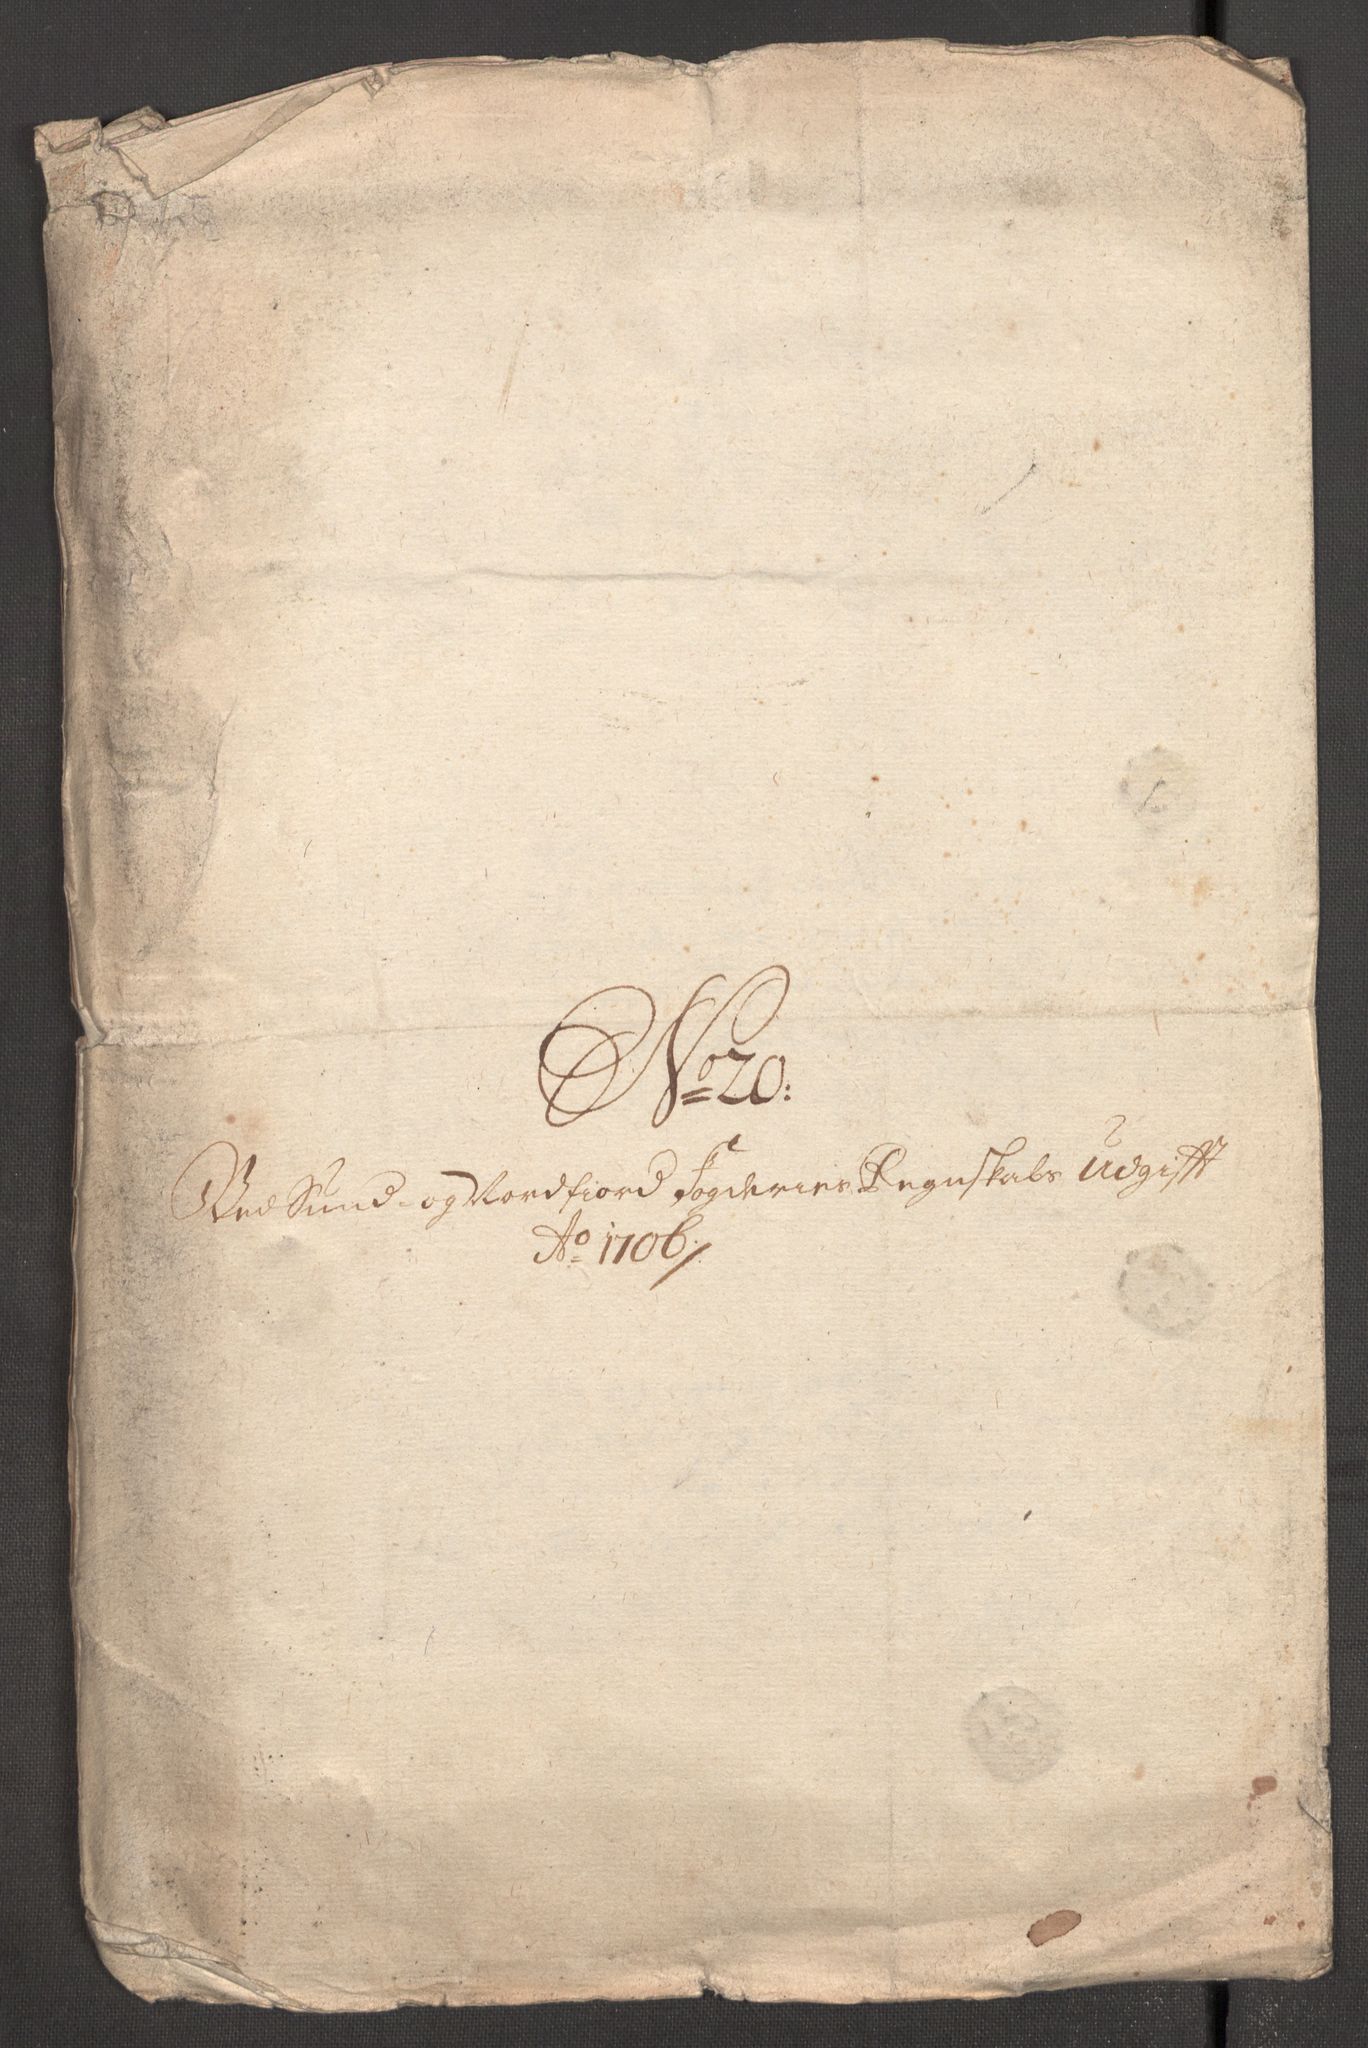 No 20:
Ved Sund- og Nordfiord Fogderies Regnskabs Udgifft
Ao 1706